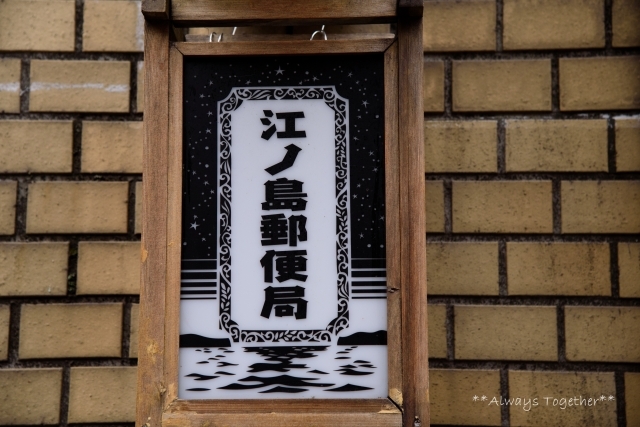 江ノ島郵便局
**Always Together**